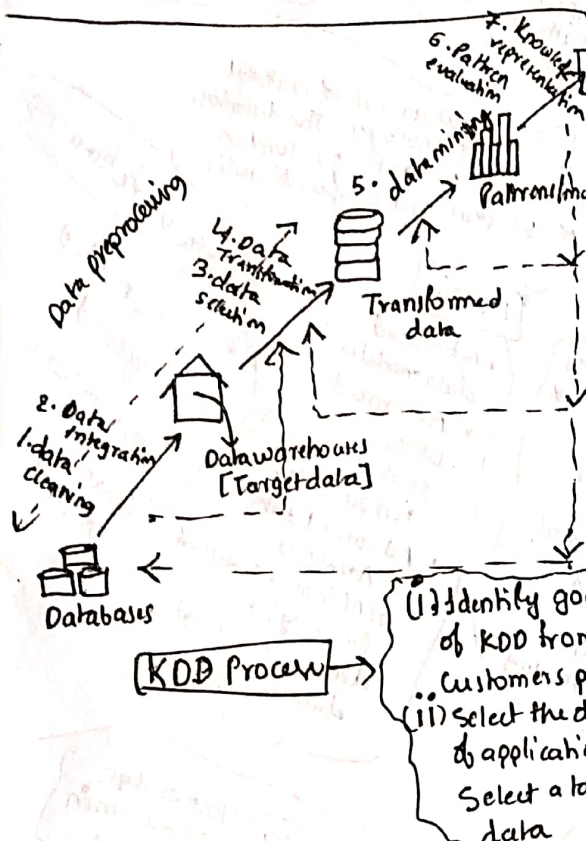 7. Knowled
representation
6. Pattren
evaluation
5. datamining
Pattrens/mo
Data preprocessing
4. Data
Transformation
3. data
selection
Transformed
data
2. Data
integration
1. data
cleaning
Datawarehouses
[Targetdata]
Databases
KDD Process
(i) Identify goa
of KDD from
Customers p
(ii) Select the d
of applicati
Select a ta
data